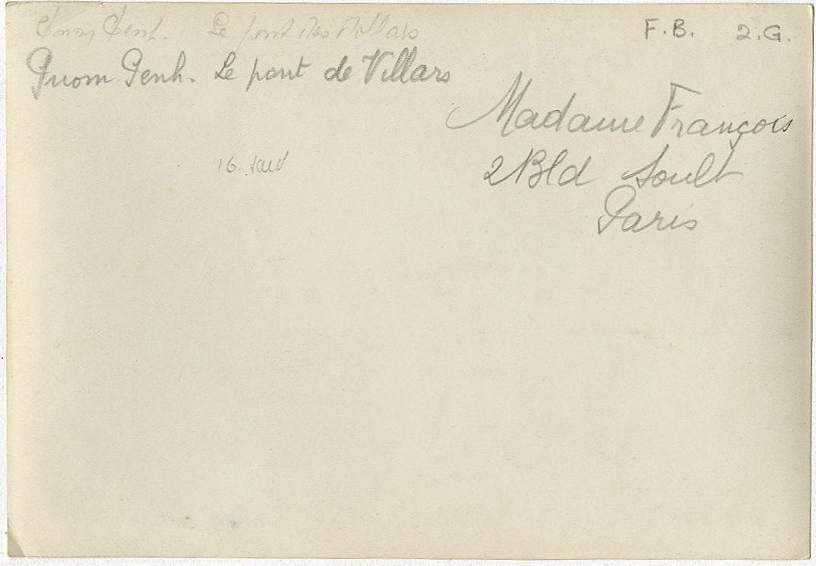 F.B. 2.G.
Pnom Penh. Le pont des Villars
Pnom Penh. Le pont de Villars
Madame François
2 Bld Soult
Paris
16.